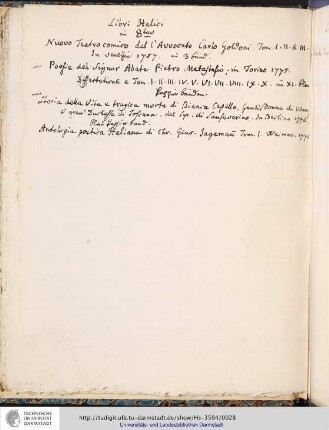 Libri Italici
in 8tavo
Nuovo Teatro comico dell'Avvocato Carlo Goldoni. Tom. I. II. & III.
In Venezia 1757. in 3 band.
Poesie del Signor Abate Pietro Metastasio; in Torino 1757.
Dissertatione e Tom. I. II. III. IV. V. VI. VII. VIII. IX. X. in XI.
Storia della Vita e tragica morte di Bianca Capello, Gentildonna di
e gran Duchessa di Toscana. dal Sgr. di Sanseverino. In Berlino 1776.
band.
Antologia poetica Italiana di Chr. Gius. Jagemann Tom. I. Weimar. 1776
TECHNISCHE
UNIVERSITÄT
DARMSTADT
http://tudigit.ulb.tu-darmstadt.de/show/Hs-3594/0028
Universitäts- und Landesbibliothek Darmstadt